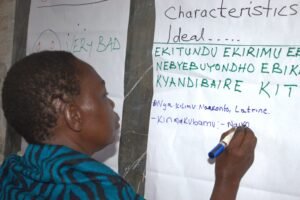 VERY BAD
Characteristics
Ideal.....
EKITUNDU EKIRIMU EB
NEBYEBUYONDHO EBIKA
KYANDIBAIRE KIT
Nga kilimu Naakonto, Latrine.
- Kirimukubamu :- Naku